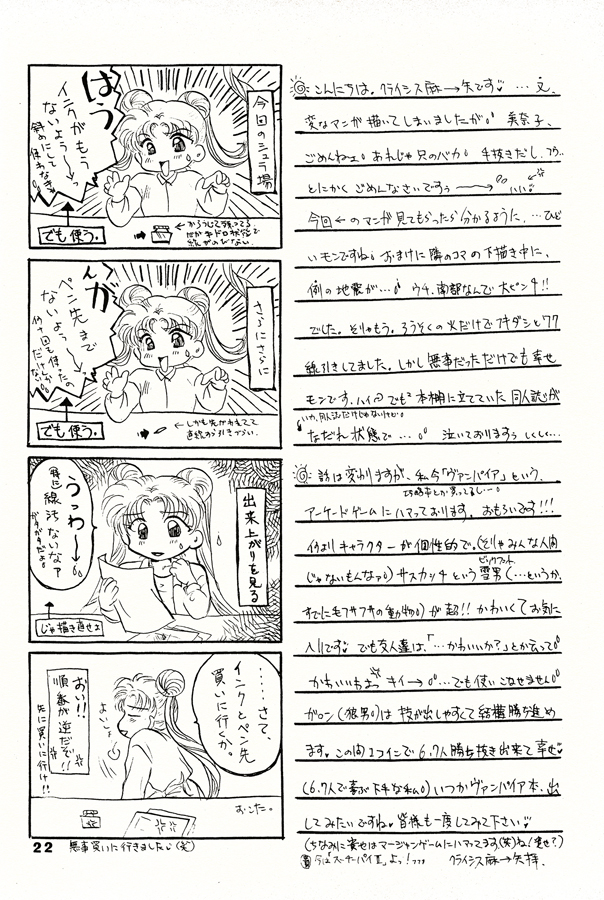 今回のシュラ場
はうっ
インクがもう
ないよぅ〜〜っ
斜めにして
使わなきゃ
でも使う。
←かろうじて残ってる
さらにさらに
が〜ん
ペン先まで
ないよぉっ〜〜
何回も使ったの
だけしか
ない
でも使う。
←しかも先がわれてて
直線すら引きづらい。
出来上がりを見る
うっわ〜〜
線汚ないな?
ガタガタだよ。
じゃ描き直せよ
……さて、
インクとペン先
買いに行くか。
よいしょ
おいっ!!
順番が逆だぞ!!
先に買いに行け!!
おこた。
22
無事買いに行きました。(笑)
こんにちは。クライシス麻→矢です♡…え.
変なマンガ描いてしまいましたが 美奈子、
ごめんねェ。あれじゃ只のバカ。手抜きだし、フゥ…
とにかく ごめんなさいですぅ〜〜
今回←のマンガ見てもらったら分かるように、…ひど
いモンですね。おまけに隣のコマの下描き中に、
例の地震が…。ウチ、南部なんで大ピンチ!!
でした。そりゃもう。ろうそくの火だけでフキダシとワク
線引きしてました。しかし無事だっただけでも幸せ
モンです。ハイ。でも²本棚に立てていた同人誌らが
いや、同人誌だけじゃないけど。
なだれ状態で…。 泣いておりますぅ しくしく…
話は変わりますが、私今「ヴァンパイア」という、
アーケードゲームにハマっております。おもろいです!!!
何よりキャラクターが個性的で。(そりゃみんな人間
じゃないもんなァ)サスカッチという雪男(…というか、
ビックフット
すでにモフサフサの動物)が超!!かわいくてお気に
入りです♡でも友人達は、「…かわいいか?」とか云って
かわいいもっ キイー→ …でも使いこなせません
ガロン(狼男)は技が出しやすくて結構勝ち進め
ます。この間1コインで6.7人勝ち抜き出来て幸せ♡
(6.7人で喜ぶ下手な私)いつかヴァンパイア本、出
してみたいですね♡皆様も一度してみて下さい♡
(ちなみに貴也はマージャンゲームにハマってます(笑)ね!貴也?)
今は「スーパーパイⅡ」よっ!
クライシス麻→矢拝.